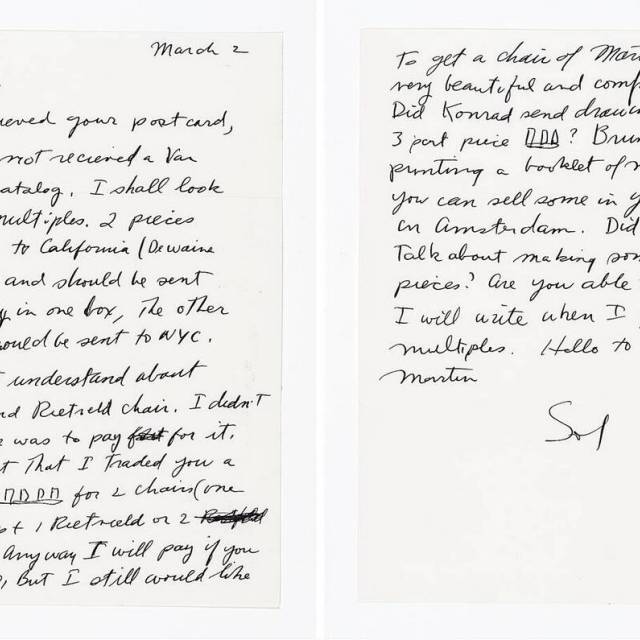 March 2
ieved your postcard,
not recieved a Van
atalog. I shall look
multiples. 2 pieces
to California (Dewaine
and should be sent
in one box, The other
ould be sent to NYC.
understand about
nd Rietveld chair. I didn't
was to pay for it.
t That I Traded you a
for 2 chairs (one
1 Rietvield or 2
Anyway I will pay if you
, But I still would like
To get a chair of Mar
very beautiful and comf
Did Konrad send drawin
3 part piece ? Brun
printing a booklet of m
you can sell some in y
in Amsterdam. Did
Talk about making som
pieces? Are you able
I will write when I
multiples. Hello to
Martin
Sol